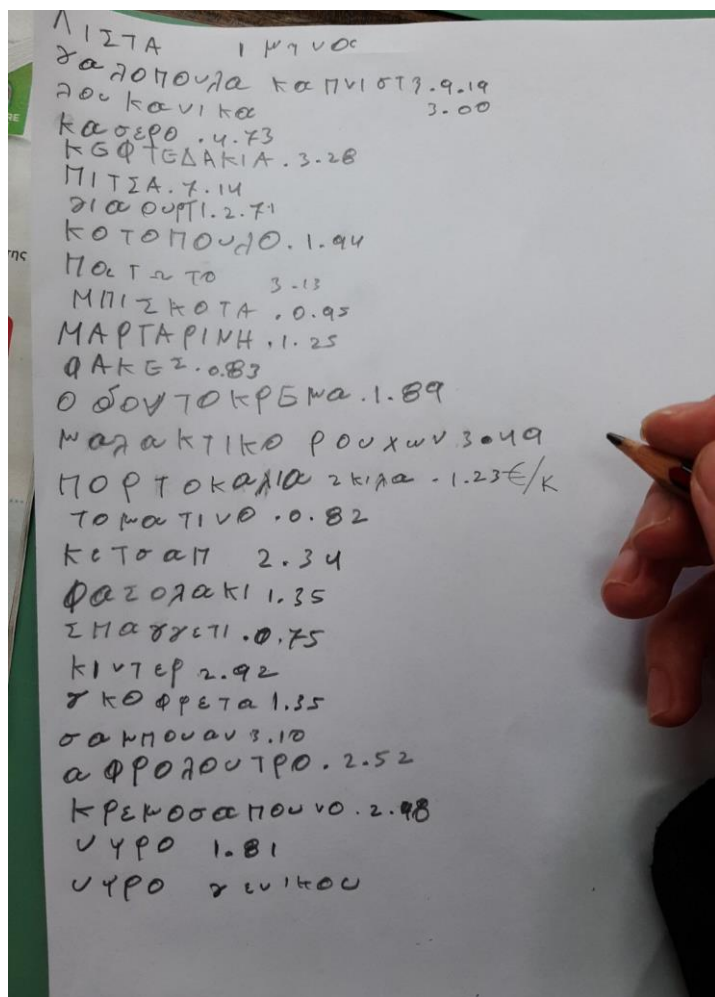 ΛΙΣΤΑ 1 μηνος
γαλοπουλα καπνιστη.9.19
λουκανικα 3.00
κασερο.4.73
ΚΕΦΤΕΔΑΚΙΑ.3.28
ΠΙΤΣΑ.7.14
γιαουρτι.2.71
ΚΟΤΟΠΟυλο.1.94
Παγωτο 3.13
ΜΠΙΣΚΟΤΑ.0.95
ΜΑΡΓΑΡΙΝΗ.1.25
ΦΑΚΕΣ.0.83
οδοντοκρεμα.1.89
μαλακτικο ρουχων 3.49
ΠΟΡΤΟΚαλια 2κιλα.1.23€/κ
τοματινο.0.82
κετσαπ 2.34
Φασολακι 1.35
Σπαγγετι.0.75
κιντερ 2.92
γκοφρετα 1.35
σαμπουαν 3.10
αφρολουτρο.2.52
κρεμοσαπουνο.2.98
υγρο 1.81
υγρο γενικου
RE
της